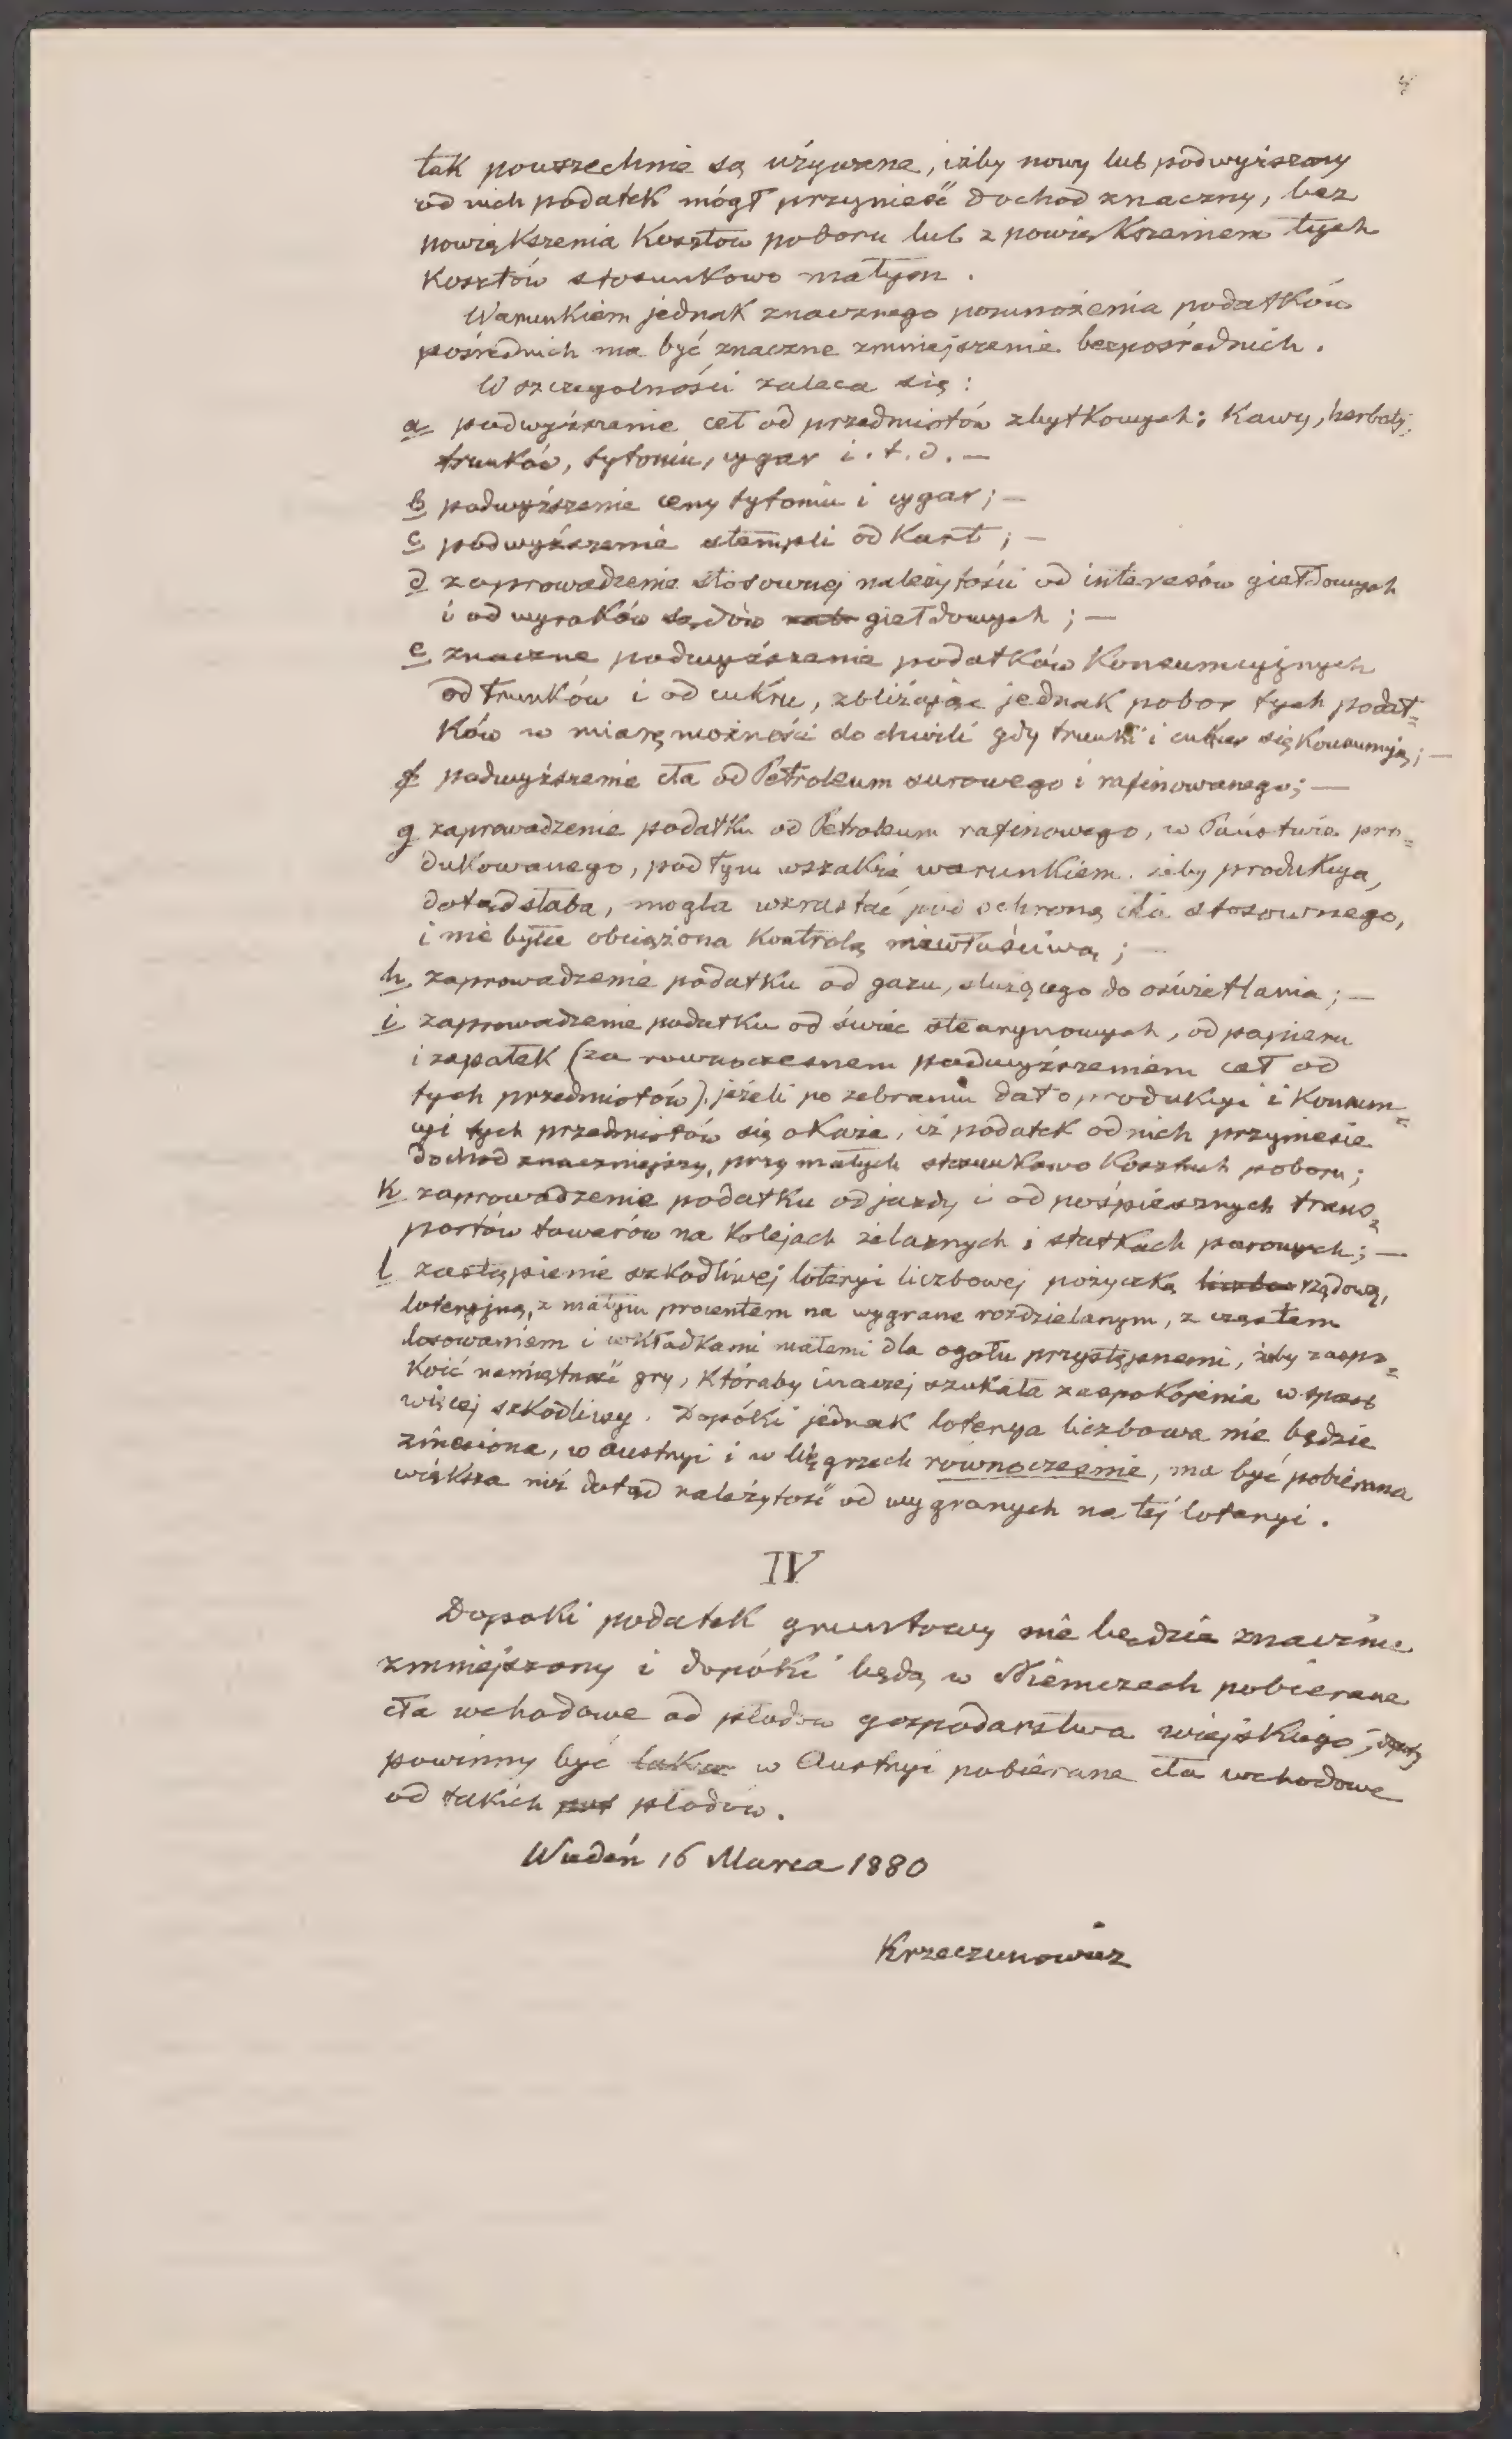 tak powszechnie są używane, iżby nowy lub podwyższony
od nich podatek mógł przynieść dochod znaczny, bez
powiększenia kosztów poboru lub z powiększeniem tych
kosztów stosunkowo małym.
Warunkiem jednak znacznego pomnożenia podatków
pośrednich ma być znaczne zmniejszenie bezpośrednich.
W szczegolności zaleca się:
a podwyższenie ceł od przedmiotów zbytkowych: kawy, herbaty,
trunków, tytoniu, cygar i.t.d. —
b podwyższenie ceny tytoniu i cygar; —
c podwyższenie stempli od kart; —
d zaprowadzenie stosownej należytości od interesów giełdowych
i od wyroków sądów giełdowych; —
e znaczne podwyższenie podatków konsumcyjnych
od trunków i od cukru, zbliżając jednak pobor tych podat=
ków w miarę możności do chwili gdy trunki i cukier się konsumują; —
f podwyższenie cła od Petroleum surowego i rafinowanego; —
g zaprowadzenie podatku od Petroleum rafinowego, w Państwie pro=
dukowanego, pod tym wszakże warunkiem iżby produkcya,
dotąd słaba, mogła wzrastać pod ochroną cła stosownego,
i nie była obciążona kontrolą niewłaściwą; —
h zaprowadzenie podatku od gazu, służącego do oświetlania; —
i zaprowadzenie podatku od świec stearynowych, od papieru
i zapałek (za rownoczesnem podwyższeniem ceł od
tych przedmiotów), jeżeli po zebraniu dat o produkcyi i konsum=
cyi tych przedmiotów się okaże, iż podatek od nich przyniesie
dochod znaczniejszy, przy małych stosunkowo kosztach poboru;
k zaprowadzenie podatku od jazdy i od pośpiesznych trans=
portów towarów na kolejach żelaznych i statkach parowych; —
l zastąpienie szkodliwej loteryi liczbowej pożyczką rządową,
loteryjną, z małym procentem na wygrane rozdzielanym, z częstem
losowaniem i wkładkami małemi dla ogołu przystępnemi, iżby zaspo=
koić namiętność gry, któraby inaczej szukała zaspokojenia w sposob
więcej szkodliwy. Dopóki jednak loterya liczbowa nie będzie
zniesiona, w Austryi i w Węgrzech równocześnie, ma być pobierana
większa niż dotąd należytość od wygranych na tej loteryi.
IV
Dopoki podatek gruntowy nie będzie znacznie
zmniejszony i dopóki będą w Niemczech pobierane
cła wchodowe od płodow gospodarstwa wiejskiego,
powinny być w Austryi pobierane cła wchodowe
od takich płodów.
Wiedeń 16 Marca 1880
Krzeczunowicz